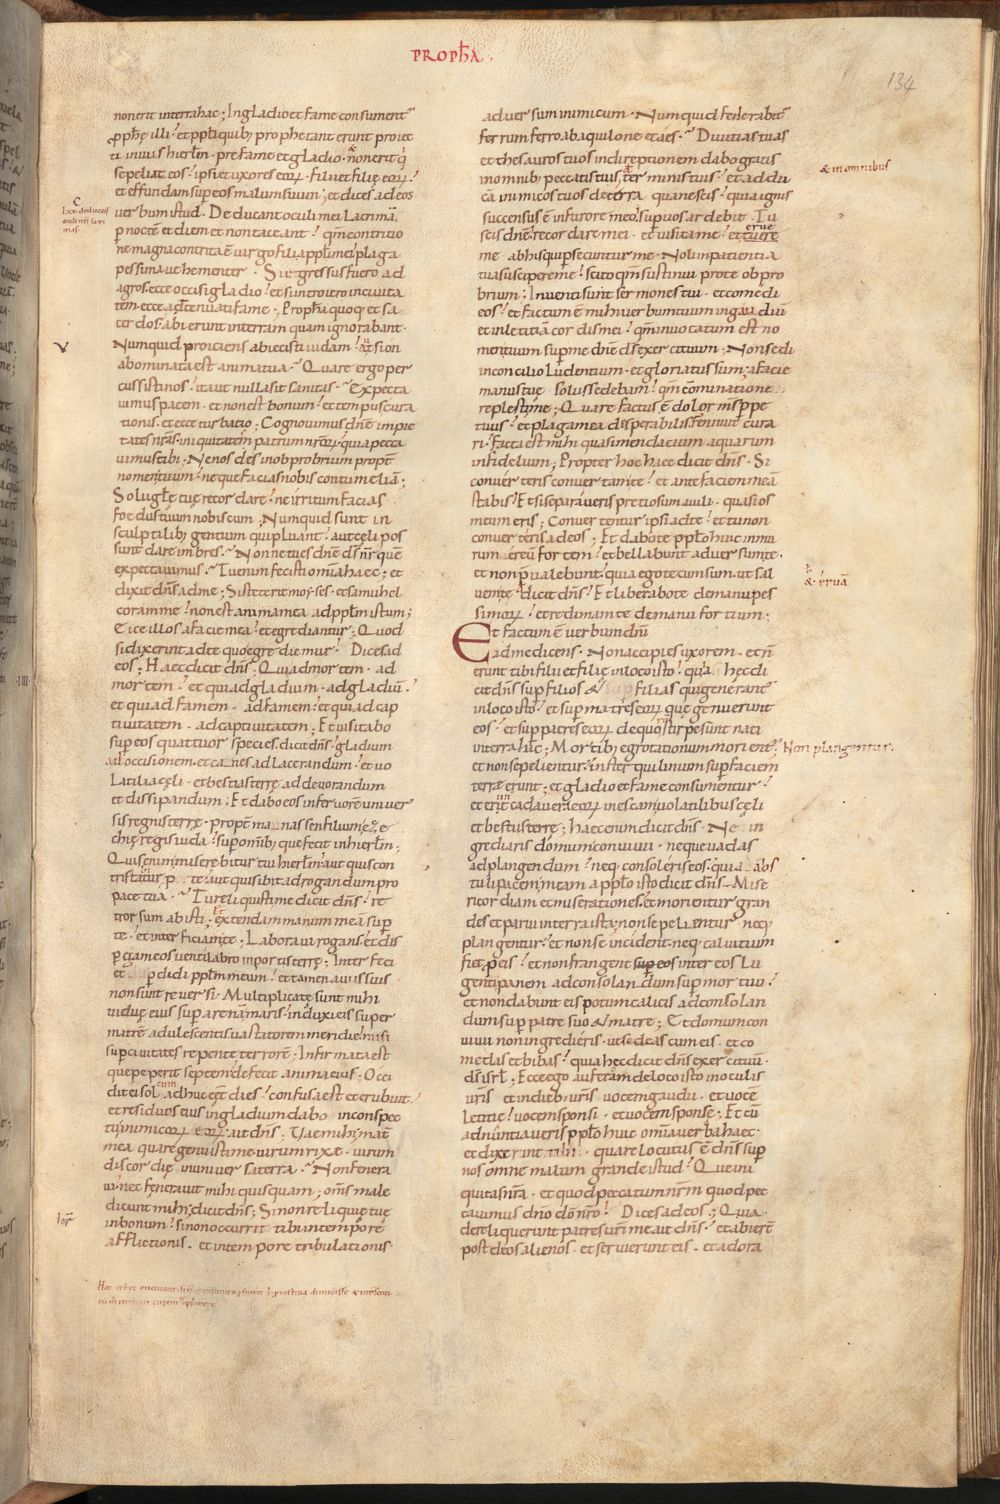 PROPHA
134
nonerit interra hac; In gladio et fame consument
pphę illi et ppli quibꝰ prophetant erunt proiec
ti in uiis hierlm. pre fame et gladio. & non erit q
sepeliat eos. ipsi et uxores eorum. filii et filię eorum.
et effundam super eos malum suum; et dices ad eos
uerbum istud. Deducant oculi mei lacrimā.
p noctē et diem et non taceant. qm contritio
ne magna contrita ē uirgo filia ppli mei plaga
pessima uehementer. Si egressus fuero ad
agros. ecce occisi gladio. et si introiero in ciuita
tem. ecce adtenuati fame; Propha quoq; et sa
cerdos. abierunt in terram quam ignorabant.
Numquid proiciens abiecisti iudam. aut sion
abominata est anima tua. Quare ergo per
cussisti nos. ita ut nulla sit sanitas. Expecta
uimus pacem. et non est bonum. et tempus cura
tionis. et ecce turbatio; Cognouimus dne impie
tates nrās. iniquitatem patrum nrorum. quia pecca
uimus tibi. Ne nos des in obprobrium propt
nomen tuum. neque facias nobis contumeliā;
Solii glę tuę recordare. ne irritum facias
foedus tuum nobiscum. Numquid sunt in
sculptilibꝰ gentium qui pluant. aut cęli pos
sunt dare imbres. Nonne tu es dne ds nr quē
expectauimus. Tu enim fecisti omnia haec; et
dixit dns ad me; Si steterit moyses. et samuhel
coram me. non est anima mea ad pplm istum;
Eice illos a facie mea. et egrediantur; Quod
si dixerint ad te quo egrediemur. Dices ad
eos; Haec dicit dns; Qui ad mortem. ad
mortem. et qui ad gladium. ad gladiū.
et qui ad famem. ad famem. et qui ad cap
tiuitatem. ad captiuitatem; Et uisitabo
sup eos quattuor species. dicit dns. gladium
ad occisionem. et canes ad lacerandum. et uo
latilia cęli. et bestias terrę ad deuorandum
et dissipandum; Et dabo eos in feruorem uniuer
sis regnis terrę. propt manassen filium eze
chię regis iuda. sup omnibꝰ que fecit in hierlm;
Quis enim miserebitur tui hierlm. aut quis con
tristabitur p te. aut quis ibit ad rogandum pro
pace tua. Tu reliquisti me dicit dns. re
trorsum abisti. & extendam manum meā sup
te. et interficiam te; Laboraui rogans. et dis
pgam eos uentilabro in portis terrę; Interfeci
et disperdidi pplm meum. et tamen a uiis suis
non sunt reuersi. Multiplicate sunt mihi
uiduę eius super arenam maris. induxi eis super
matrē adulescentis uastatorem meridie. misi
sup ciuitates repente terrorē; Infirmata est
que peperit septem. defecit anima eius. Occi
dit ei sol cum adhuc esset dies. confusa est et erubuit.
et residuos eius in gladium dabo. in conspec
tu inimicorum eorum. ait dns. Vae mihi mat
mea quare genuisti me uirum rixę. uirum
discordię in uniuersa terra. Non fenera
ui. nec feneruit mihi quisquam; oms male
dicunt mihi. dicit dns; Si non reliquię tuę
in bonum. si non occurri tibi in tempore
afflictionis. et in tempore tribulationis.
aduersum inimicum. Numquid federabit
ferrum ferro ab aquilone et aes. Diuitias tuas
et thesauros tuos in direptionem dabo gratis
in omnibꝰ peccatis tuis, & terminis tuis. et addu
cā inimicos tuos de terra quam nescis. quia ignis
succensus ē in furore meo. sup uos ardebit. Tu
scis dne. recordare mei. et uisita me. et tuere
erue
me ab his qui psecuntur me. Noli in patientia
tua suscipere me. scito qm sustinui pro te obpro
brium; Inuenti sunt sermones tui. et comedi
eos. et factum ē mihi uerbum tuum in gaudiū
et in letitiā cordis mei. qm inuocatum est no
men tuum sup me dne ds exercituum. Non sedi
in concilio ludentium. et gloriatus sum; a facie
manus tuę. solus sedebam. qm cōminatione
replesti me; Quare factus ē dolor ms ppe
tuus. et plaga mea disperabilis renuit cura
ri. Facta est mihi quasi mendacium aquarum
infidelium; Propter hoc haec dicit dns. Si
conuerteris conuertam te. et ante faciem meā
stabis. Et si separaueris pretiosum a uili. quasi os
meum eris; Conuertentur ipsi ad te. et tu non
conuerteris ad eos; Et dabo te pplo huic in mu
rum ereū fortem. et bellabunt aduersum te.
et non pualebunt. quia ego tecum sum. ut sal
uem te. dicit dns. Et liberabo te de manu pes
simorum. et redimam te de manu fortium.
Et factum ē uerbum dni
ad me dicens. Non accipies uxorem. et n
erunt tibi filii et filię in loco isto. quia hęc di
cit dns sup filios & sup filias qui generant
in loco isto. et sup matres eorum quę genuerunt
eos. et sup patres eorum de quorum stirpe sunt nati
in terra hac; Mortibꝰ egrotationum morient. Non plangentur.
et non sepelientur. in sterquilinium sup faciem
terrę erunt. et gladio et fame consumentur.
et erit cadauer eorum in escam uolatilibus cęli
et bestiis terrę; haec enim dicit dns. Ne in
grediaris domum conuiuii. neque uadas
ad plangendum. neq; consoleris eos. quia abs
tuli pacem meam a pplo isto dicit dns. Mise
ricordiam et miserationes. et morientur gran
des et parui in terra ista. non sepelientur. neq;
plangentur. et non se incident. neq; caluitium
fiet p eis. et non frangent sup eos inter eos lu
genti panem ad consolandum sup mortuo.
et non dabunt eis potum calicis ad consolan
dum sup patre suo & matre; Et domum con
uiuii non ingredieris. ut sedeas cum eis. et co
medas et bibas. quia hęc dicit dns exercituū.
ds isrl; Ecce ego auferam de loco isto in oculis
uris. et in diebꝰ uris uocem gaudii. et uocē
letitię. uocem sponsi. et uocem sponse; Et cū
adnuntiaueris pplo huic omnia uerba haec.
et dixerint tibi. quare locutus ē dns sup
nos omne malum grande istud. Que ini
quitas nra. et quod peccatum nrm quod pec
cauimus dno dō nro. Dices ad eos; Quia
dereliquerunt patres uri me ait dns. et abierē
post deos alienos. et seruierunt eis. et adora
& in omnibus